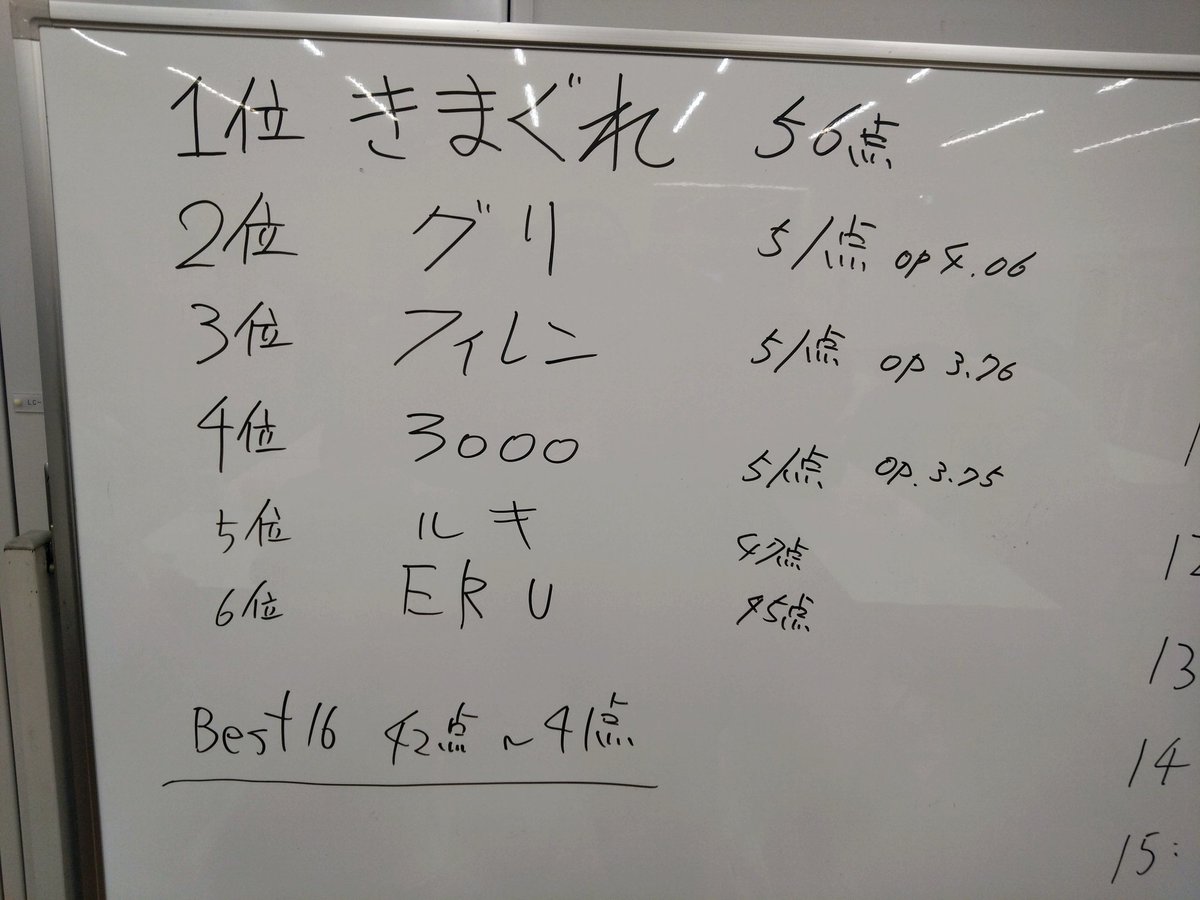 1位 きまぐれ 56点
2位 グリ 51点 op 4.06
3位 フィレン 51点 op 3.76
4位 3000 51点 op. 3.75
5位 ルキ 47点
6位 ERU 45点
Best16 42点~41点
12
13
14
15:
LC-